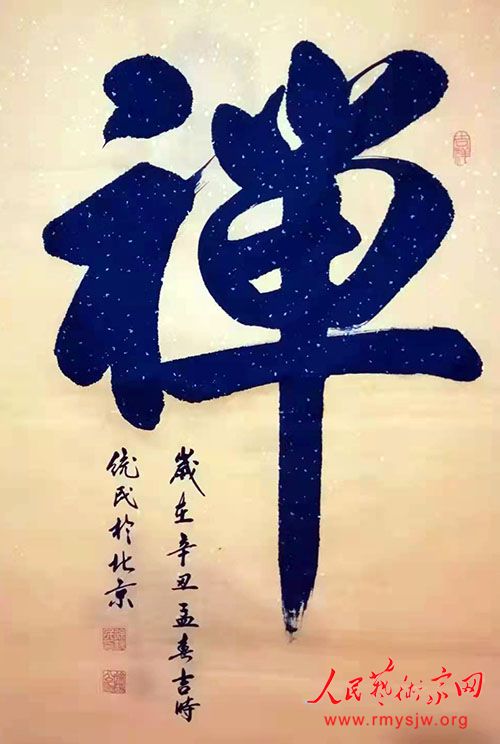 禅
歲在辛丑孟春吉時
统民於北京
吉祥
人民藝術家网
www.rmysjw.org